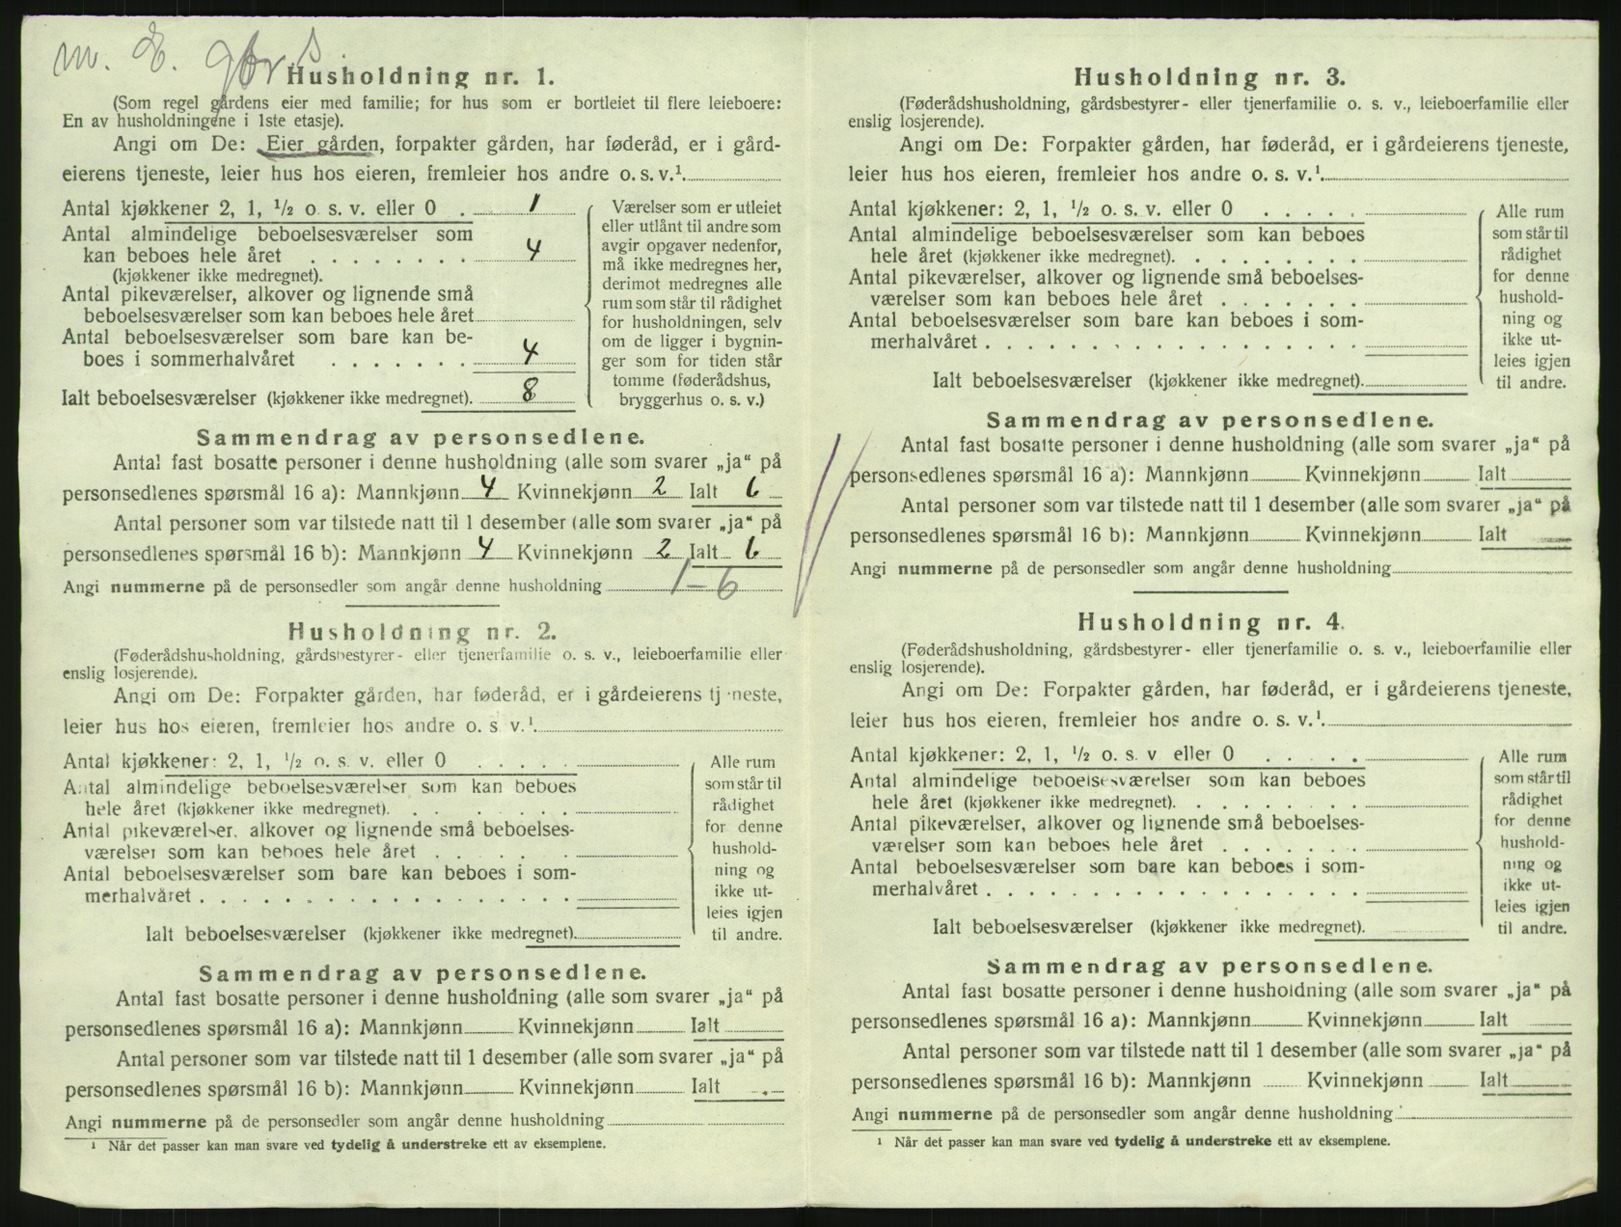 m. E. gbr s
Husholdning nr. 1.
(Som regel gårdens eier med familie; for hus som er bortleiet til flere leieboere:
En av husholdningene i 1ste etasje).
Angi om De: Eier gården, forpakter gården, har føderåd, er i gård-
eierens tjeneste, leier hus hos eieren, fremleier hos andre o. s. v.¹.
Antal kjøkkener 2, 1, ½ o. s. v. eller 0 . 1
Antal almindelige beboelsesværelser som
kan beboes hele året . . . . . . . . 4
(kjøkkener ikke medregnet).
Antal pikeværelser, alkover og lignende små
beboelsesværelser som kan beboes hele året
Antal beboelsesværelser som bare kan be-
boes i sommerhalvåret . . . . . . . 4
Ialt beboelsesværelser (kjøkkener ikke medregnet). 8
Værelser som er utleiet
eller utlånt til andre som
avgir opgaver nedenfor,
må ikke medregnes her,
derimot medregnes alle
rum som står til rådighet
for husholdningen, selv
om de ligger i bygnin-
ger som for tiden står
tomme (føderådshus,
bryggerhus o. s. v.)
Sammendrag av personsedlene.
Antal fast bosatte personer i denne husholdning (alle som svarer „ja“ på
personsedlenes spørsmål 16 a): Mannkjønn 4 Kvinnekjønn 2 Ialt 6
Antal personer som var tilstede natt til 1 desember (alle som svarer „ja“ på
personsedlenes spørsmål 16 b): Mannkjønn 4 Kvinnekjønn 2 Ialt 6
Angi nummerne på de personsedler som angår denne husholdning 1–6
Husholdning nr. 2.
(Føderådshusholdning, gårdsbestyrer- eller tjenerfamilie o. s. v., leieboerfamilie eller
enslig losjerende).
Angi om De: Forpakter gården, har føderåd, er i gårdeierens tj neste,
leier hus hos eieren, fremleier hos andre o. s v.¹.
Antal kjøkkener: 2, 1, ½ o. s. v. eller 0 . . . . .
Antal almindelige beboelsesværelser som kan beboes
hele året (kjøkkener ikke medregnet). . . . . . . .
Antal pikeværelser, alkover og lignende små beboelses-
værelser som kan beboes hele året . . . . . .
Antal beboelsesværelser som bare kan beboes i som-
merhalvåret . . . . . . . . . . . . . . . . . .
Ialt beboelsesværelser (kjøkkener ikke medregnet).
Alle rum
som står til
rådighet
for denne
hushold-
ning og
ikke ut-
leies igjen
til andre.
Sammendrag av personsedlene.
Antal fast bosatte personer i denne husholdning (alle som svarer „ja“ på
personsedlenes spørsmål 16 a): Mannkjønn Kvinnekjønn Ialt
Antal personer som var tilstede natt til 1 desember (alle som svarer „ja“ på
personsedlenes spørsmål 16 b): Mannkjønn Kvinnekjønn Ialt
Angi nummerne på de personsedler som angår denne husholdning
¹ Når det passer kan man svare ved tydelig å understreke ett av eksemplene.
Husholdning nr. 3.
(Føderådshusholdning, gårdsbestyrer- eller tjenerfamilie o. s. v., leieboerfamilie eller
enslig losjerende).
Angi om De: Forpakter gården, har føderåd, er i gårdeierens tjeneste,
leier hus hos eieren, fremleier hos andre o. s. v.¹.
Antal kjøkkener: 2, 1, ½ o. s. v. eller 0 . . . . .
Antal almindelige beboelsesværelser som kan beboes
hele året (kjøkkener ikke medregnet). . . . . . . . .
Antal pikeværelser, alkover og lignende små beboelses-
værelser som kan beboes hele året . . . . . . .
Antal beboelsesværelser som bare kan beboes i som-
merhalvåret . . . . . . . . . . . . . . . . . .
Ialt beboelsesværelser (kjøkkener ikke medregnet).
Alle rum
som står til
rådighet
for denne
hushold-
ning og
ikke ut-
leies igjen
til andre.
Sammendrag av personsedlene.
Antal fast bosatte personer i denne husholdning (alle som svarer „ja“ på
personsedlenes spørsmål 16 a): Mannkjønn Kvinnekjønn Ialt
Antal personer som var tilstede natt til 1 desember (alle som svarer „ja“ på
personsedlenes spørsmål 16 b): Mannkjønn Kvinnekjønn Ialt
Angi nummerne på de personsedler som angår denne husholdning
Husholdning nr. 4.
(Føderådshusholdning, gårdsbestyrer- eller tjenerfamilie o. s. v., leieboerfamilie eller
enslig losjerende).
Angi om De: Forpakter gården, har føderåd, er i gårdeierens tjeneste,
leier hus hos eieren, fremleier hos andre o. s. v.¹.
Antal kjøkkener: 2, 1, ½ o. s. v eller 0 . . . . .
Antal almindelige beboelsesværelser som kan beboes
hele året (kjøkkener ikke medregnet). . . . . . . . .
Antal pikeværelser, alkover og lignende små beboelses-
værelser som kan beboes hele året . . . . . . .
Antal beboelsesværelser som bare kan beboes i som-
merhalvåret . . . . . . . . . . . . . . . . . .
Ialt beboelsesværelser (kjøkkener ikke medregnet).
Alle rum
som står til
rådighet
for denne
hushold-
ning og
ikke ut-
leies igjen
til andre.
Sammendrag av personsedlene.
Antal fast bosatte personer i denne husholdning (alle som svarer „ja“ på
personsedlenes spørsmål 16 a): Mannkjønn Kvinnekjønn Ialt
Antal personer som var tilstede natt til 1 desember (alle som svarer „ja“ på
personsedlenes spørsmål 16 b): Mannkjønn Kvinnekjønn Ialt
Angi nummerne på de personsedler som angår denne husholdning
¹ Når det passer kan man svare ved tydelig å understreke ett av eksemplene.